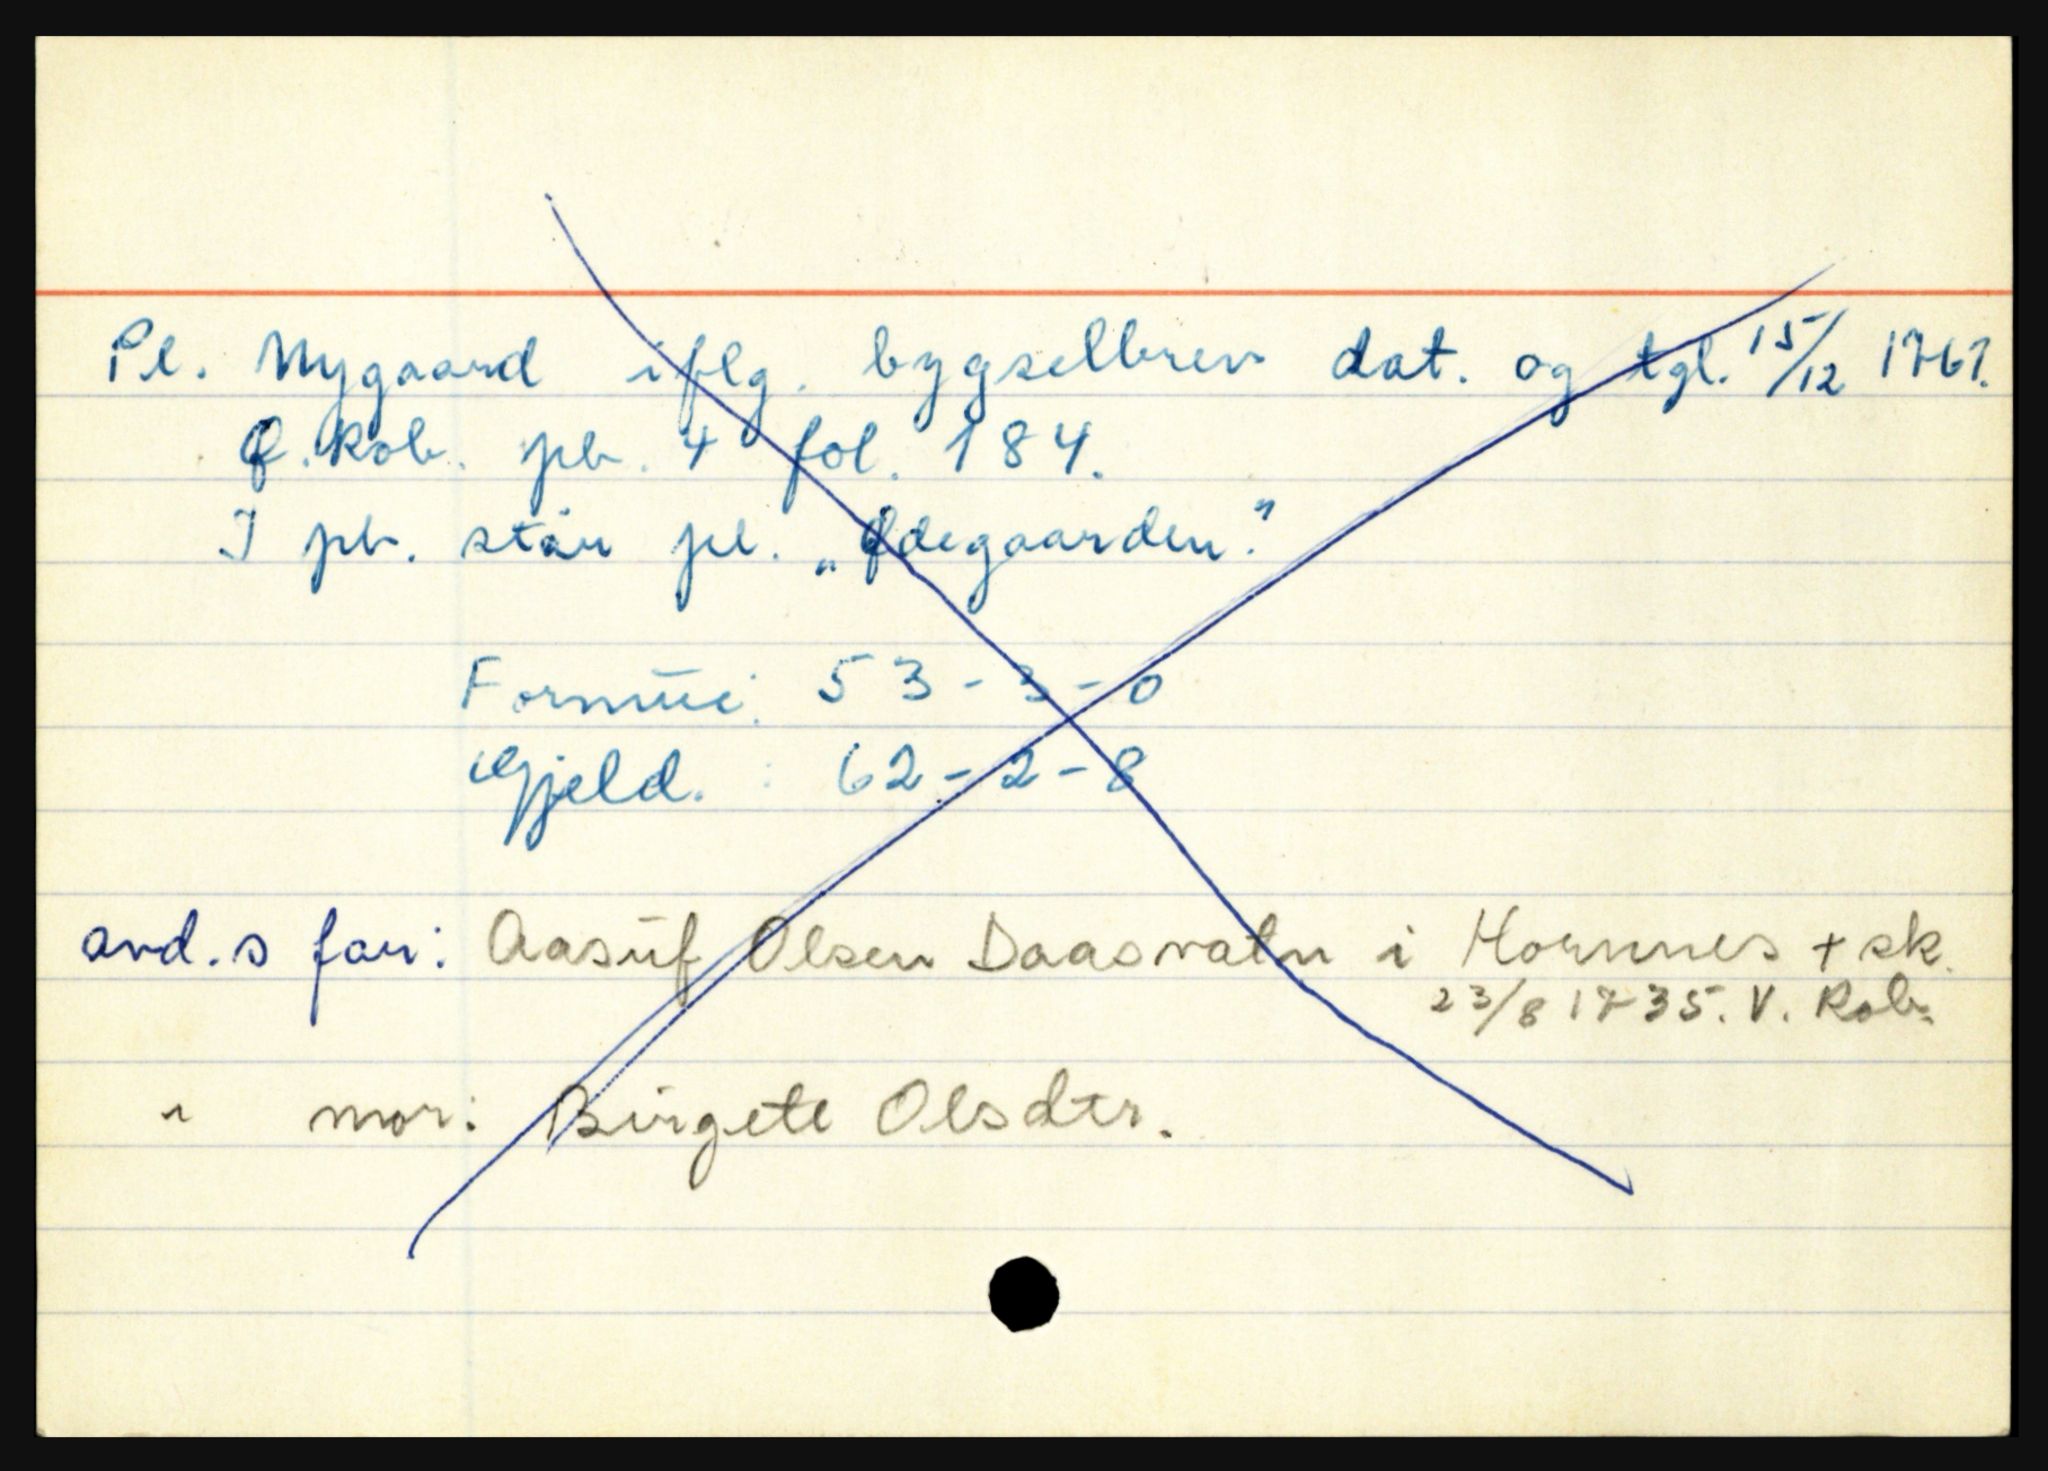 Pl. Nygaard iflg. bygselbrev dat. og tgl. 15/12 1761.
Ø. Rob. pb. 4 fol. 184.
I pb. står pl. „Ødegaarden."
Formue: 53-3-0
Gjeld. : 62-2-8
avd.s far: Aasuf Olsen Daasvatn i Hornnes + sk.
23/8 1735. V. Rob.
" mor: Birgete Olsdtr.